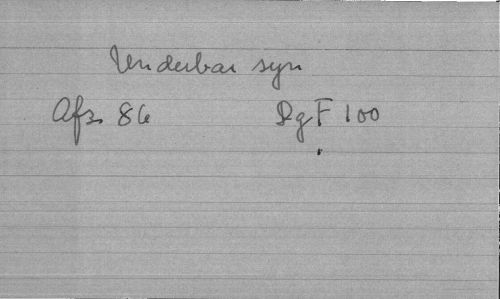 Underbar syn
Afz. 86
RgF 100